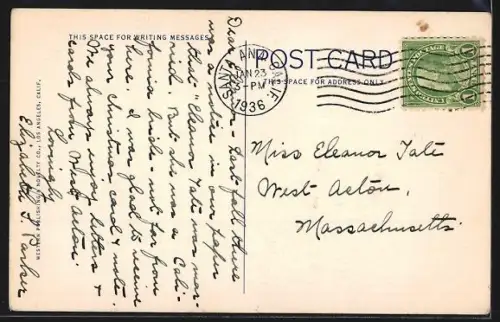 THIS SPACE FOR WRITING MESSAGES
Dear Eleanor - Last fall there
was a notice in our paper
that Eleanor Tate was mar-
ried. But she was a Cali-
fornia bride - not far from
here. I was glad to receive
your Christmas card & note.
We always enjoy letters &
cards from West Acton.
Lovingly
Elizabeth F. Parker
WESTERN PUBLISHING & NOVELTY CO., LOS ANGELES, CALIF.
POST CARD
THIS SPACE FOR ADDRESS ONLY
SANTA ANA
CALIF.
JAN 23
5-PM
1936
Miss Eleanor Tate
West Acton,
Massachusetts.